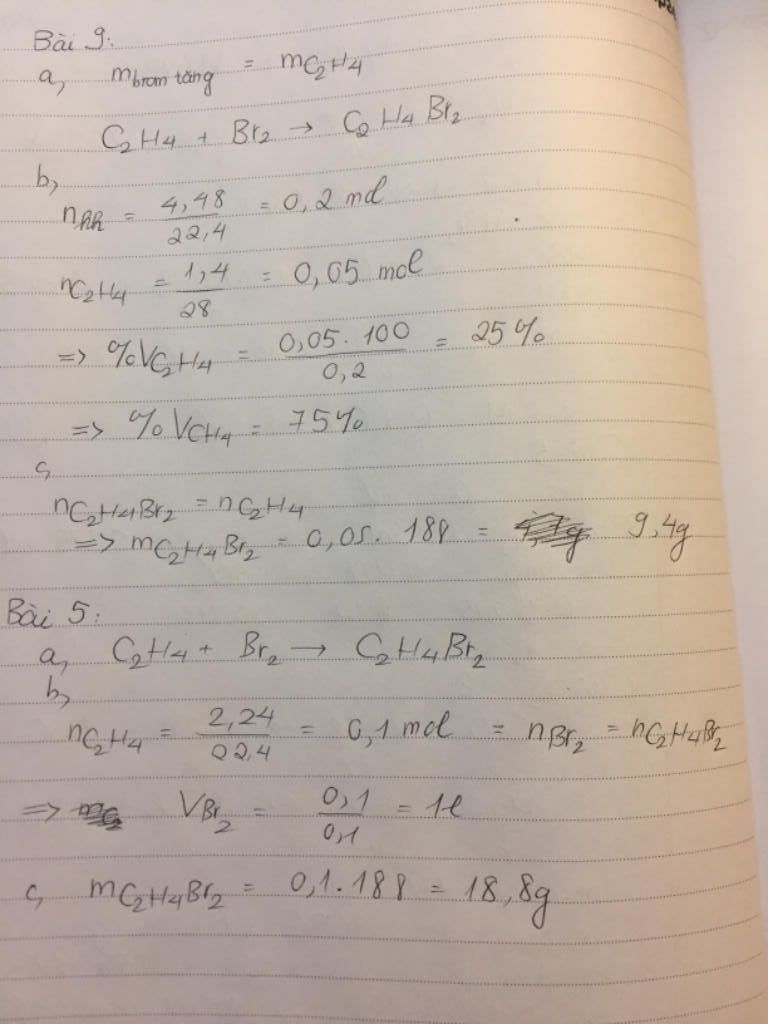 Bài 9:
a, m brom tăng = mC2H4
C2H4 + Br2 → C2H4Br2
b,
nhh = 4,48/22,4 = 0,2 mol
nC2H4 = 1,4/28 = 0,05 mol
=> %VC2H4 = 0,05.100/0,2 = 25%
=> %VCH4 = 75%
c,
nC2H4Br2 = nC2H4
=> mC2H4Br2 = 0,05. 188 = 9,4g
Bài 5:
a, C2H4 + Br2 → C2H4Br2
b,
nC2H4 = 2,24/22,4 = 0,1 mol = nBr2 = nC2H4Br2
=> VBr2 = 0,1/0,1 = 1l
c, mC2H4Br2 = 0,1.188 = 18,8g